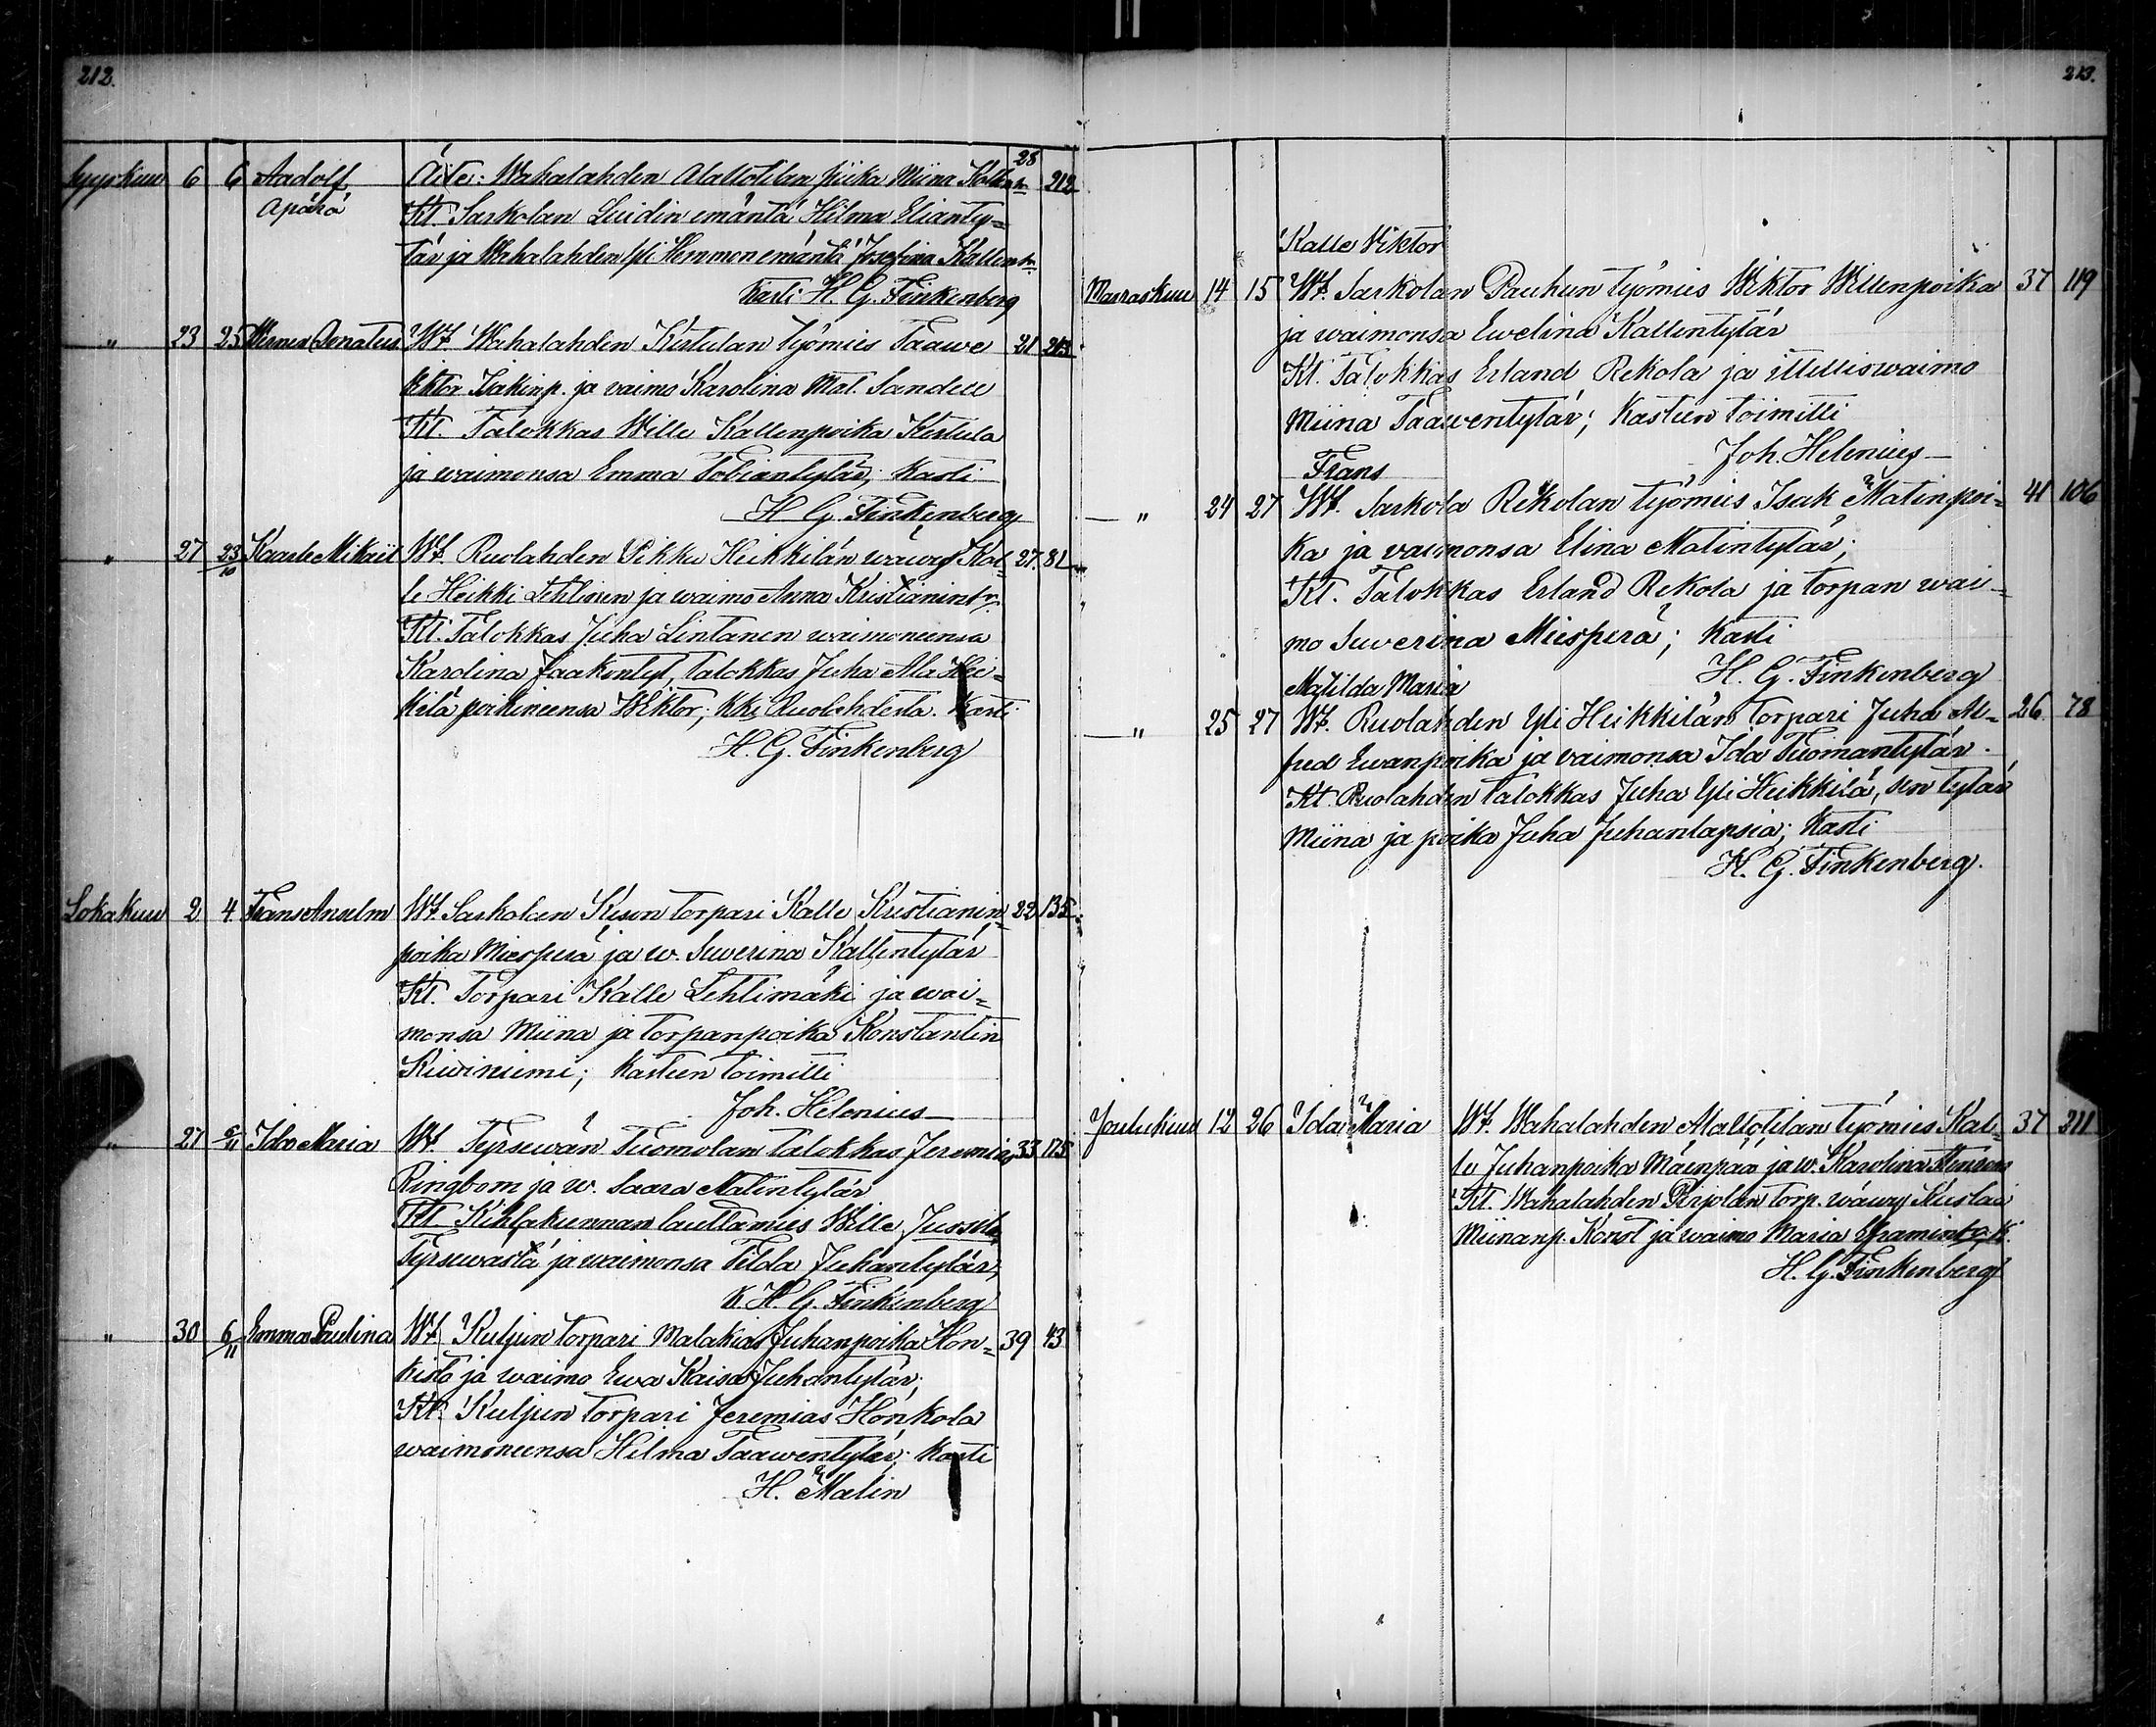 212.
Syyskuu 6 6 Aadolf, Äite: Wahalahden Alaltotilan piika Miina Kallent. 28 212
Äpärä Kt. Sarkolan Luidin emäntä Hilma Elianty-
tär ja Wahalahden Yli Hemmon emäntä Josefina Kallent.
Kasti H. G. Finkenberg
" 23 25 Werner Donatus Wt. Wahalahden Kistulan työmies Taawe 21 213
Iisakinp. ja vaimo Karolina Mat. Sandell
Kt. Talokkas Wille Kallenpoika Kistula
ja waimonsa Emma Tobiantytär; Kasti
H. G. Finkenberg
" 27 23/10 Kaarle Mikael Wt. Ruolahden Pikku Heikkilän wäwy Kal- 27. 81
le Heikki Lehtinen ja waimo Anna Kristianint.
Kt. Talokkas Juha Lintanen waimoneensa
Karolina Jaakontyt, talokkas Juha Ala Hei-
kilä poikineensa Wiktor; Kki Ruolahdesta. Kasti
H. G. Finkenberg
Lokakuu 2 4. Frans Anselm Wt. Sarkolan Kison torpari Kalle Kristianin- 22 135
poika Miesperä ja w. Suverina Kallentytär
Kt. Torpari Kalle Lehtimäki ja wai-
monsa Miina ja torpanpoika Konstantin
Kiviniemi; Kasteen toimitti
Joh. Helenius
" 27 6/11 Ida Maria Wt. Tyrsewän Tuomolan talokkas Jeremias 33 175
Ringbom ja w. Saara Matintytär
Kt. Kihlakunnan lauttamies Wille Jussila,
Tyrsewästä ja waimonsa Tilda Juhantytär,
K. H. G. Finkenberg
" 30 6/11 Emma Paulina Wt. Kuljun torpari Malakias Juhanpoika Hon- 39 43
kisto ja waimo Ewa Kaisa Juhantytär;
Kt. Kuljun torpari Jeremias Honkola
waimoneensa Hilma Taawentytär; Kasti
H. Malin
213.
Kalle Viktor
Marraskuu 14 15 Wt. Sarkolan Pauhun työmies Wiktor Willenpoika 37 119
ja waimonsa Ewelina Kallentytär
Kt. Talokkas Erland Rekola ja itelliswaimo
Miina Taawentytär; Kasteen toimitti
Joh. Helenius
Frans
" 24 27 Wt. Sarkola Rekolan työmies Isak Matinpoi- 41 106
ka ja vaimonsa Elina Matintytär;
Kt. Talokkas Erland Rekola ja torpan wai-
mo Suverina Miesperä; Kasti
H. G. Finkenberg
Matilda Maria
" 25 27 Wt. Ruolahden Yli Heikkilän torpari Juha Al- 26. 78
fred Ewanpoika ja vaimonsa Ida Tuomantytär.
Kt. Ruolahden talokkas Juha Yli Heikkilä, sen tytär
Miina ja poika Juha Juhanlapsia; Kasti
H. G. Finkenberg.
Joulukuu 12 26 Ida Maria Wt. Wahalahden Alaltotilan työmies Kal- 37 211
le Juhanpoika Mäenpää ja w. Karolina
Kt. Wahalahden Pirjolan torp. wäwy Kustaa
Miinanp. Konst ja waimo Maria
H. G. Finkenberg